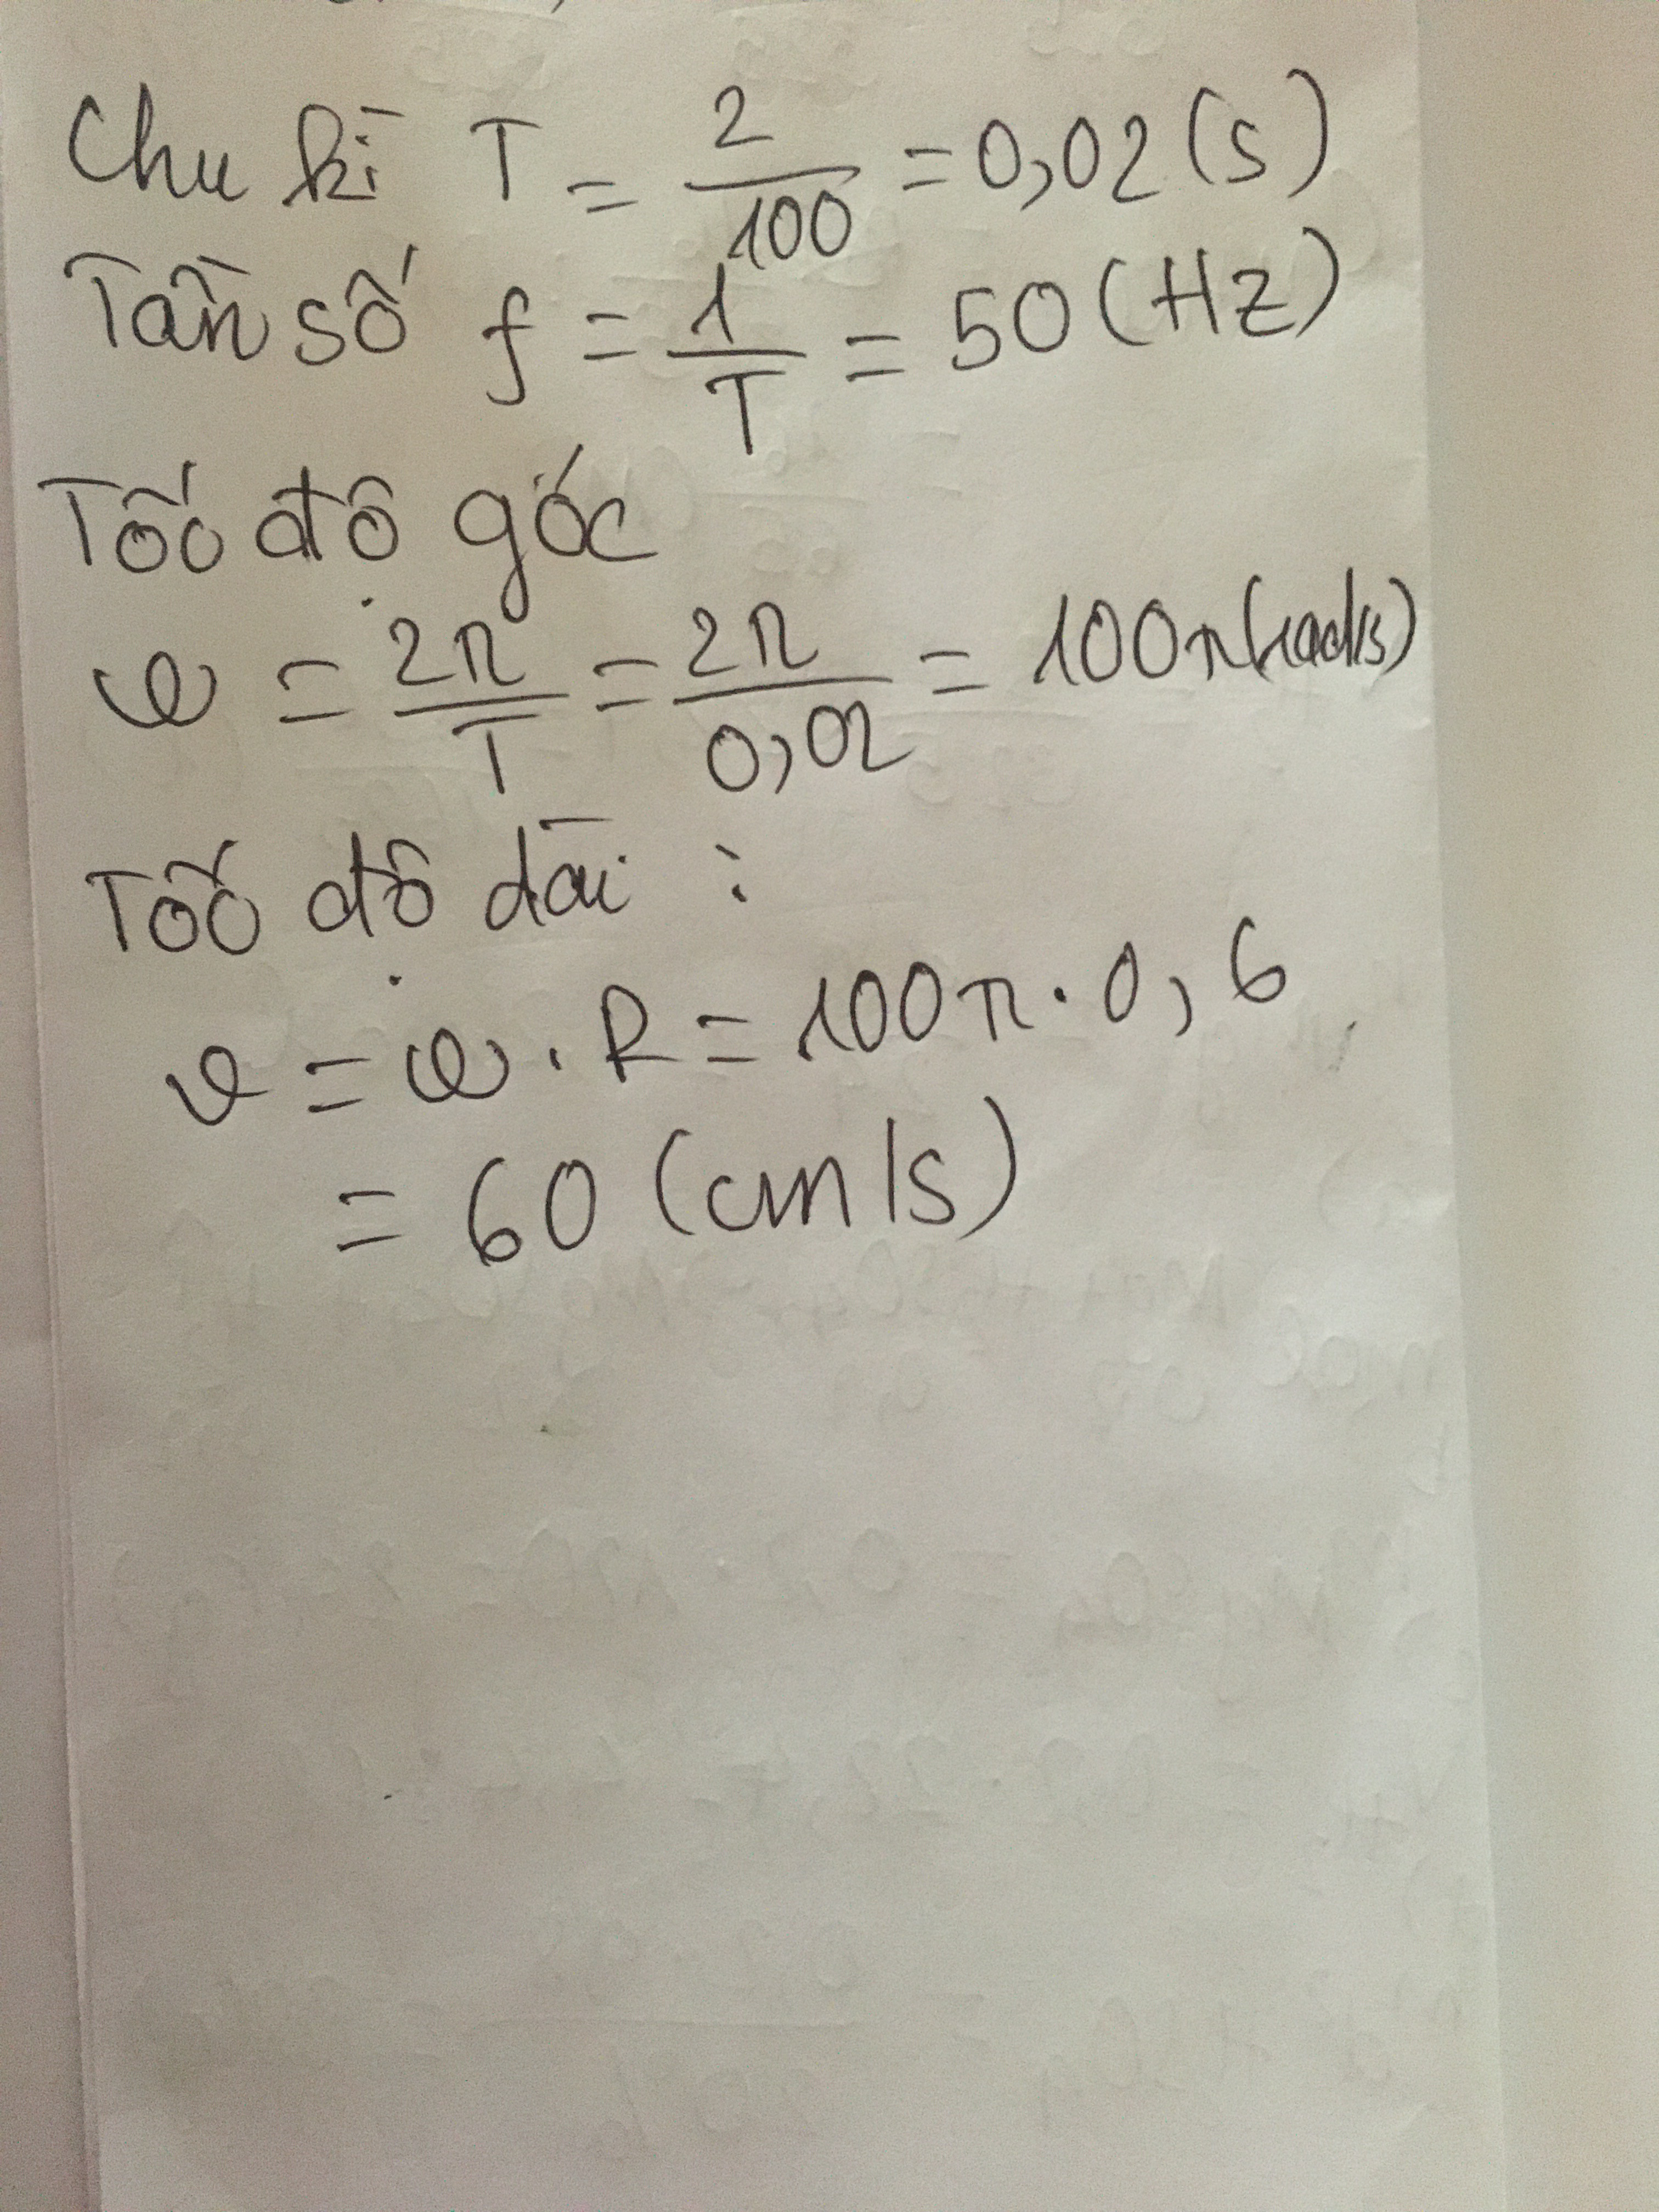 Chu kì T = 2/100 = 0,02 (s)
Tần số f = 1/T = 50 (Hz)
Tốc độ góc
ω = 2π/T = 2π/0,02 = 100π (rad/s)
Tốc độ dài :
v = ω . R = 100π . 0,6
= 60 (cm/s)